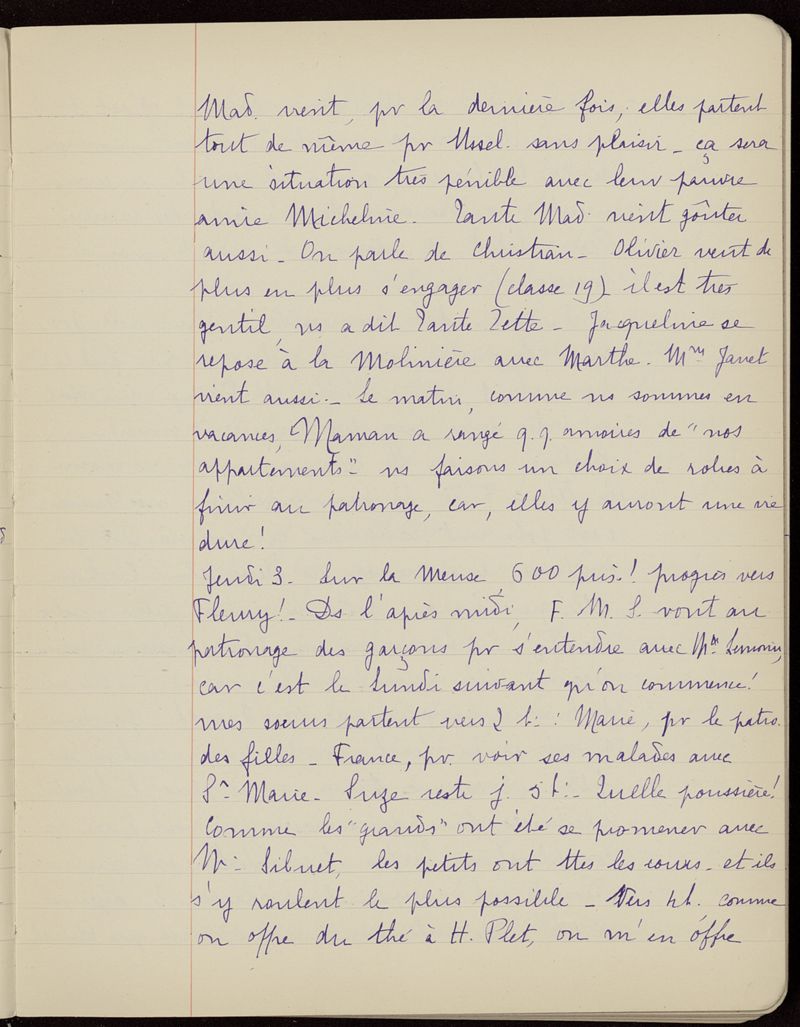 Mad. vient, pr la dernière fois, elles partent
tout de même pr Ussel. sans plaisir – ça sera
une situation très pénible avec leur pauvre
amie Micheline. Tante Mad. vient goûter
aussi – On parle de Christian – Olivier veut de
plus en plus s'engager (classe 19) il est très
gentil, ns a dit Tante Zette – Jacqueline se
repose à la Molinière avec Marthe. Mme Janet
vient aussi – Le matin, comme ns sommes en
vacances, Maman a rangé q.q. armoires de "nos
appartements" – ns faisons un choix de robes à
finir au patronage, car, elles y auront une vie
dure!
Jeudi 3 – Sur la Meuse, 600 pris! progrès vers
Fleury! – Ds l'après midi, F. M. S. vont au
patronage des garçons pr s'entendre avec Mr
car c'est le Lundi suivant qu'on commence!
mes sœurs partent vers 2 h – : Marie, pr le patro.
des filles – France, pr. voir ses malades avec
Sr Marie – Suze reste j. 5 h – Quelle poussière!
Comme les "grands" ont été se promener avec
Mr Sibuet, les petits ont ttes les cours – et ils
s'y roulent le plus possible – Vers 4h. comme
on offre du thé à H. Plet, on m'en offre